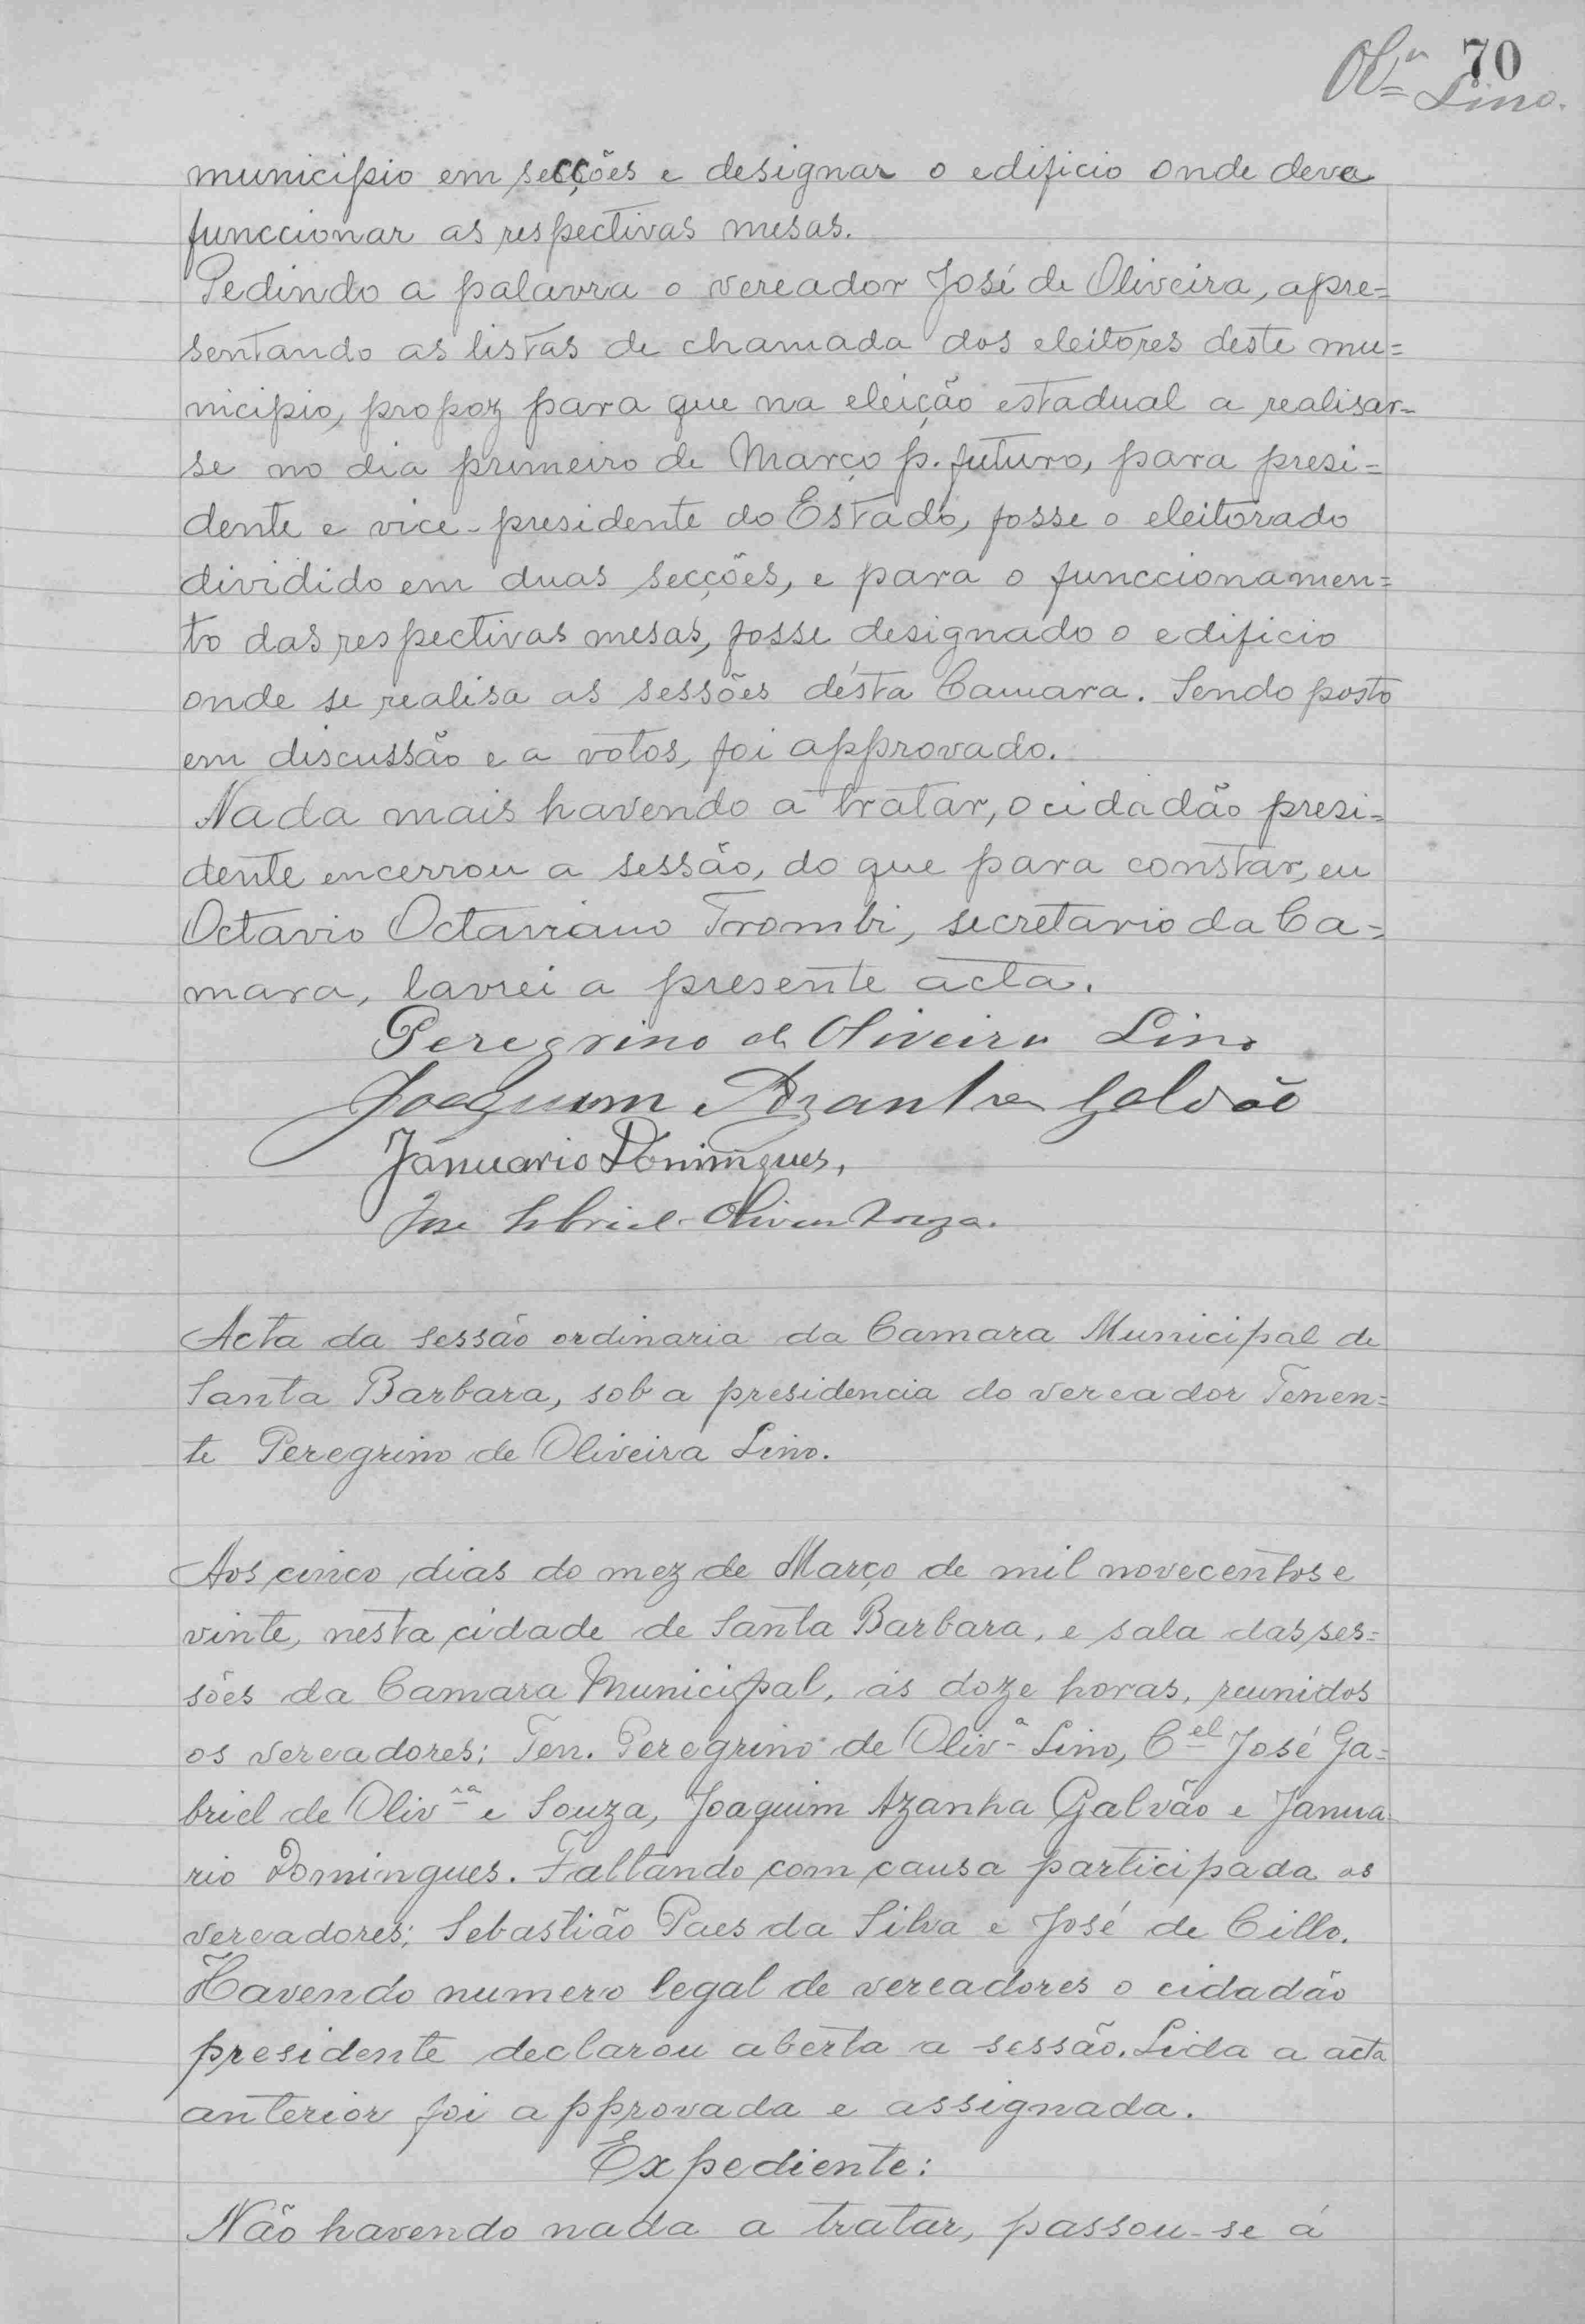 70
Olª Lino.
municipio em secções e designar o edificio onde deva
funccionar as respectivas mesas.
Pedindo a palavra o vereador José de Oliveira, apre=
sentando as listas de chamada dos eleitores deste mu=
nicipio, propoz para que na eleição estadual a realisar-
se no dia primeiro de Março p. futuro, para presi=
dente e vice-presidente do Estado, fosse o eleitorado
dividido em duas secções, e para o funccionamen=
to das respectivas mesas, fosse designado o edificio
onde se realisa as sessões désta Camara. Sendo posto
em discussão e a votos, foi approvado.
Nada mais havendo a tratar, o cidadão presi=
dente encerrou a sessão, do que para constar, eu
Octavio Octaviano Trombi, secretario da Ca=
mara, lavrei a presente acta.
Peregrino de Oliveira Lino
Joaquim Azanha Galvão
Januario Domingues,
José Gabriel Oliveira Souza.
Acta da sessão ordinaria da Camara Municipal de
Santa Barbara, sob a presidencia do vereador Tenen=
te Peregrino de Oliveira Lino.
Aos cinco dias do mez de Março de mil novecentos e
vinte, nesta cidade de Santa Barbara, e sala das ses=
sões da Camara Municipal, ás doze horas, reunidos
os vereadores: Ten. Peregrino de Olivª Lino, Cel José Ga=
briel de Olivrª e Souza, Joaquim Azanha Galvão e Janua-
rio Domingues. Faltando com causa participada os
vereadores; Sebastião Paes da Silva e José de Cillo.
Havendo numero legal de vereadores o cidadão
presidente declarou aberta a sessão. Lida a acta
anterior foi approvada e assignada.
Expediente:
Não havendo nada a tratar, passou-se á